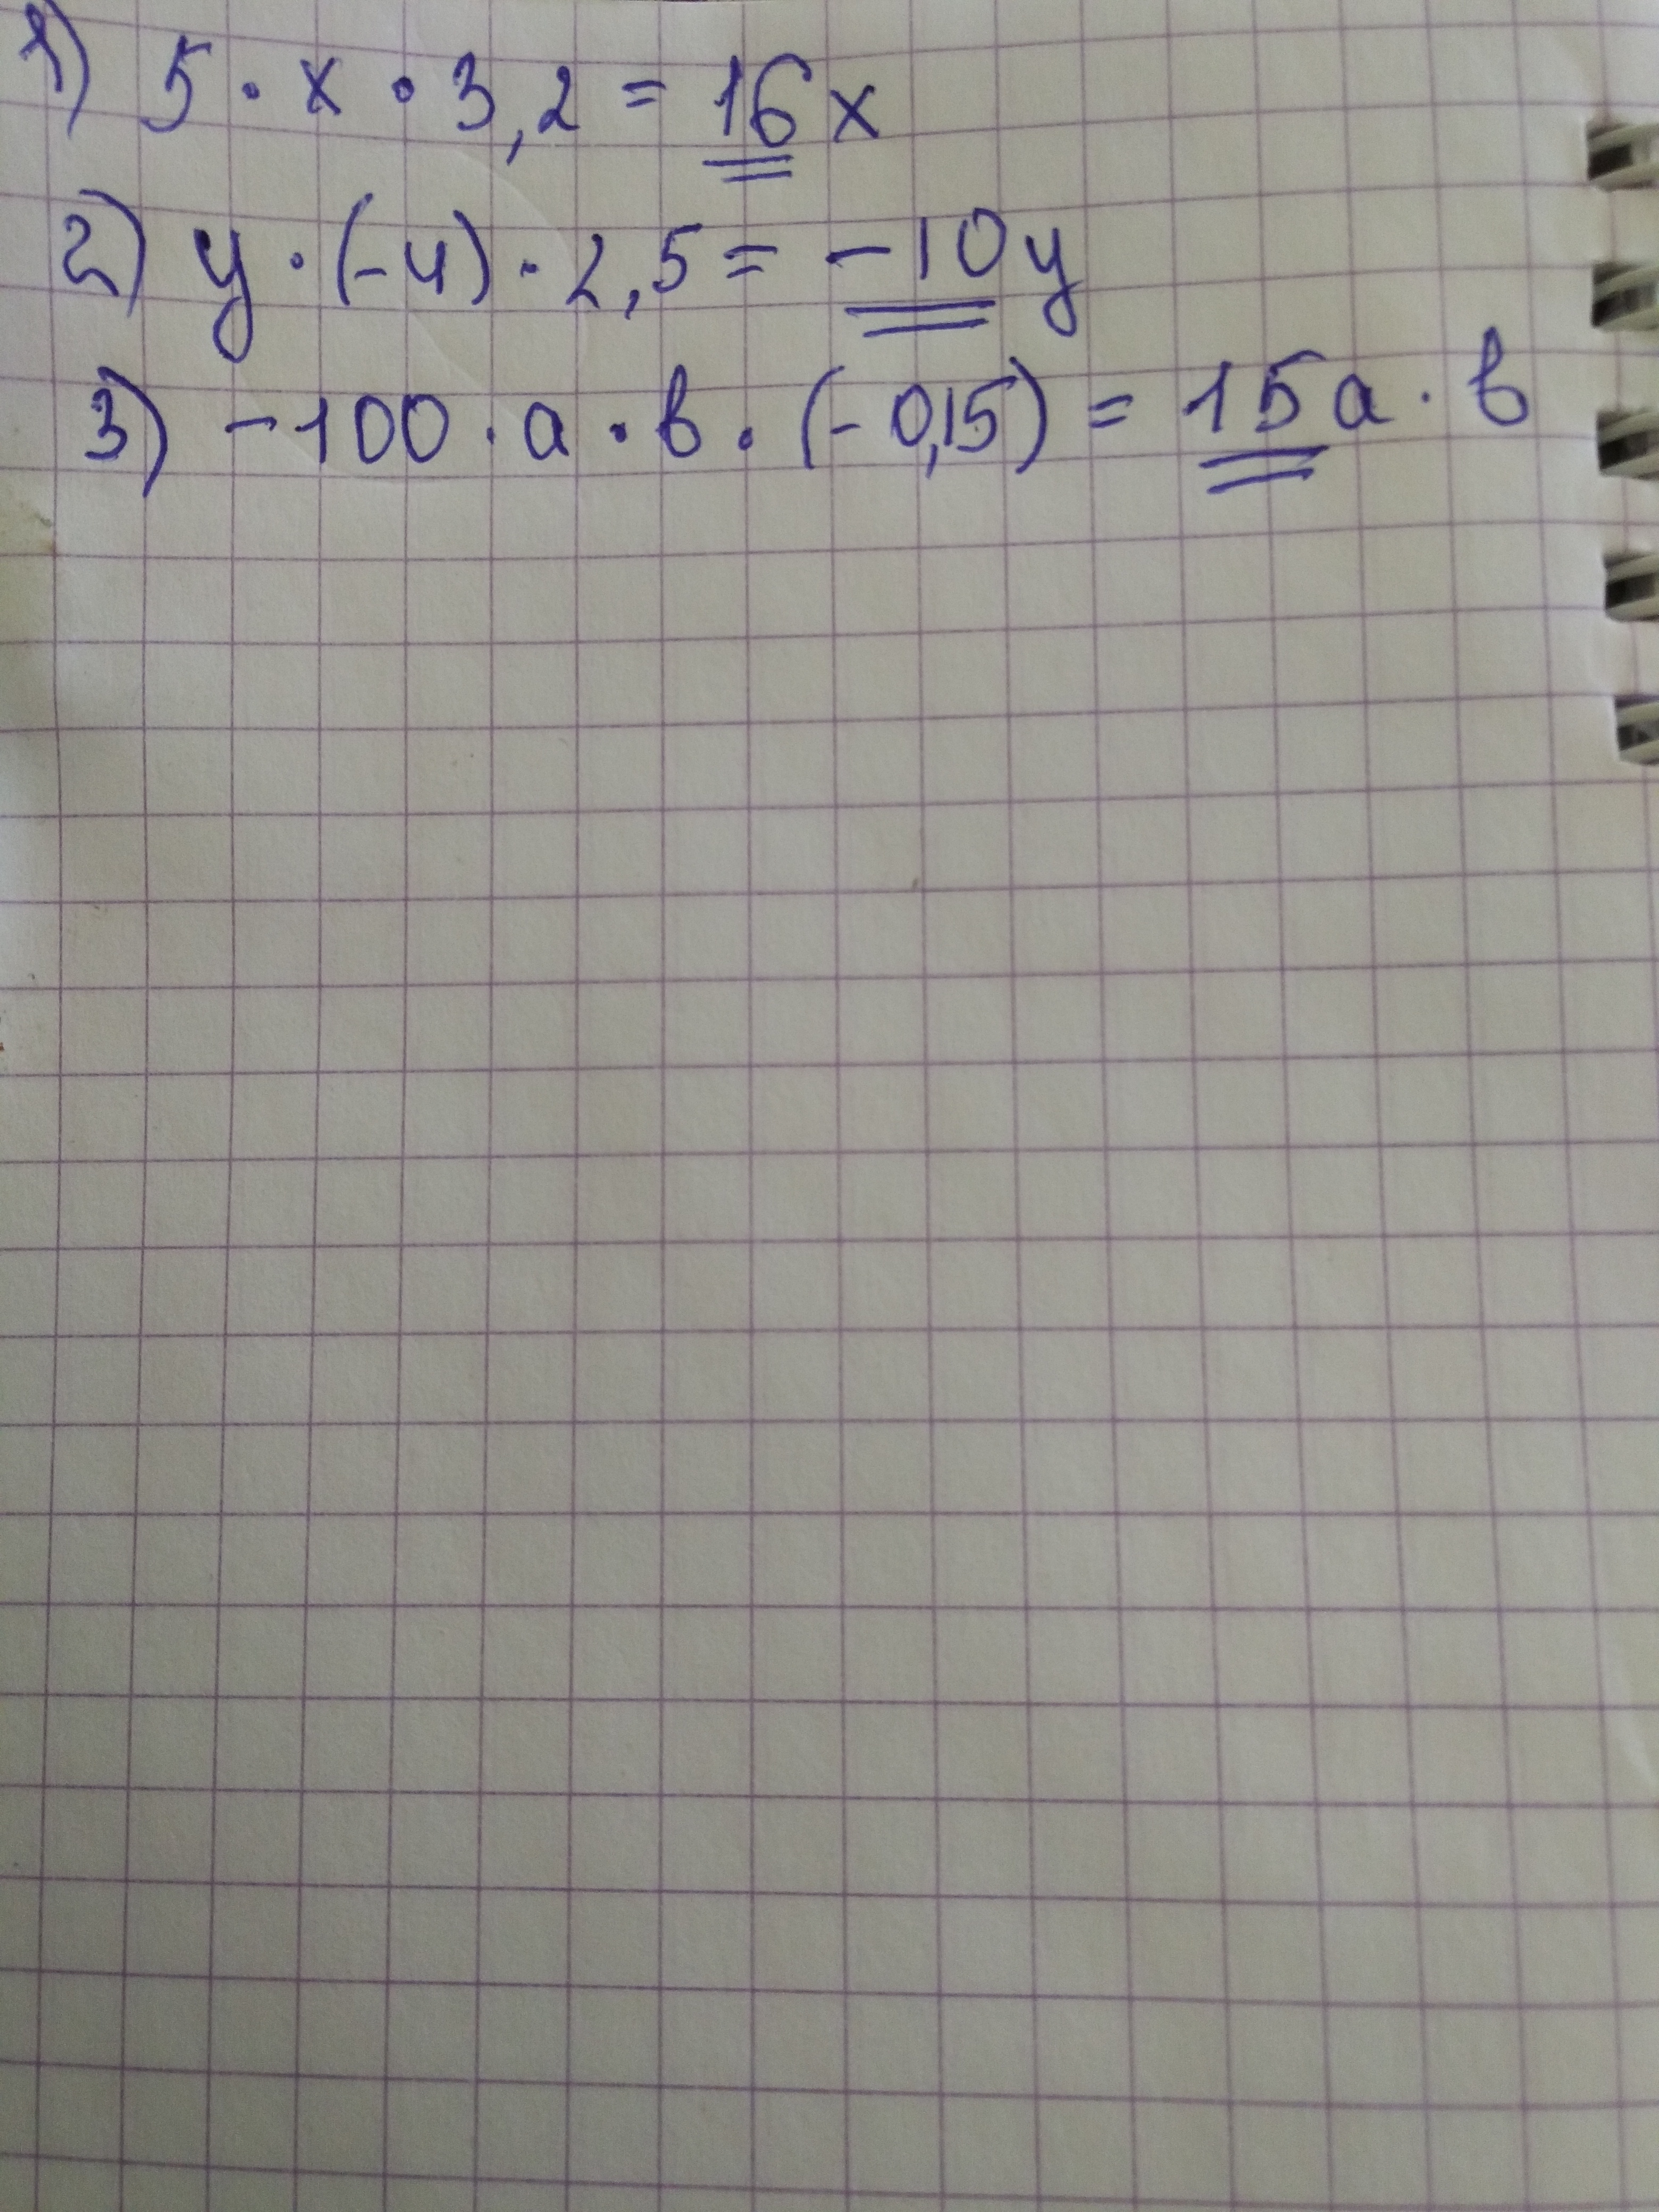 1) 5 · x · 3,2 = 16x
2) y · (-4) · 2,5 = -10y
3) -100 · a · b · (-0,15) = 15a · b